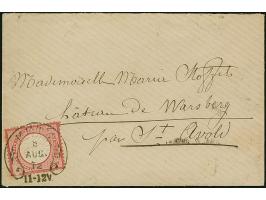 Mademoiselle Marie Stoffels
château de Warsberg
par St Avold
8
AUG.
72
11-12V.